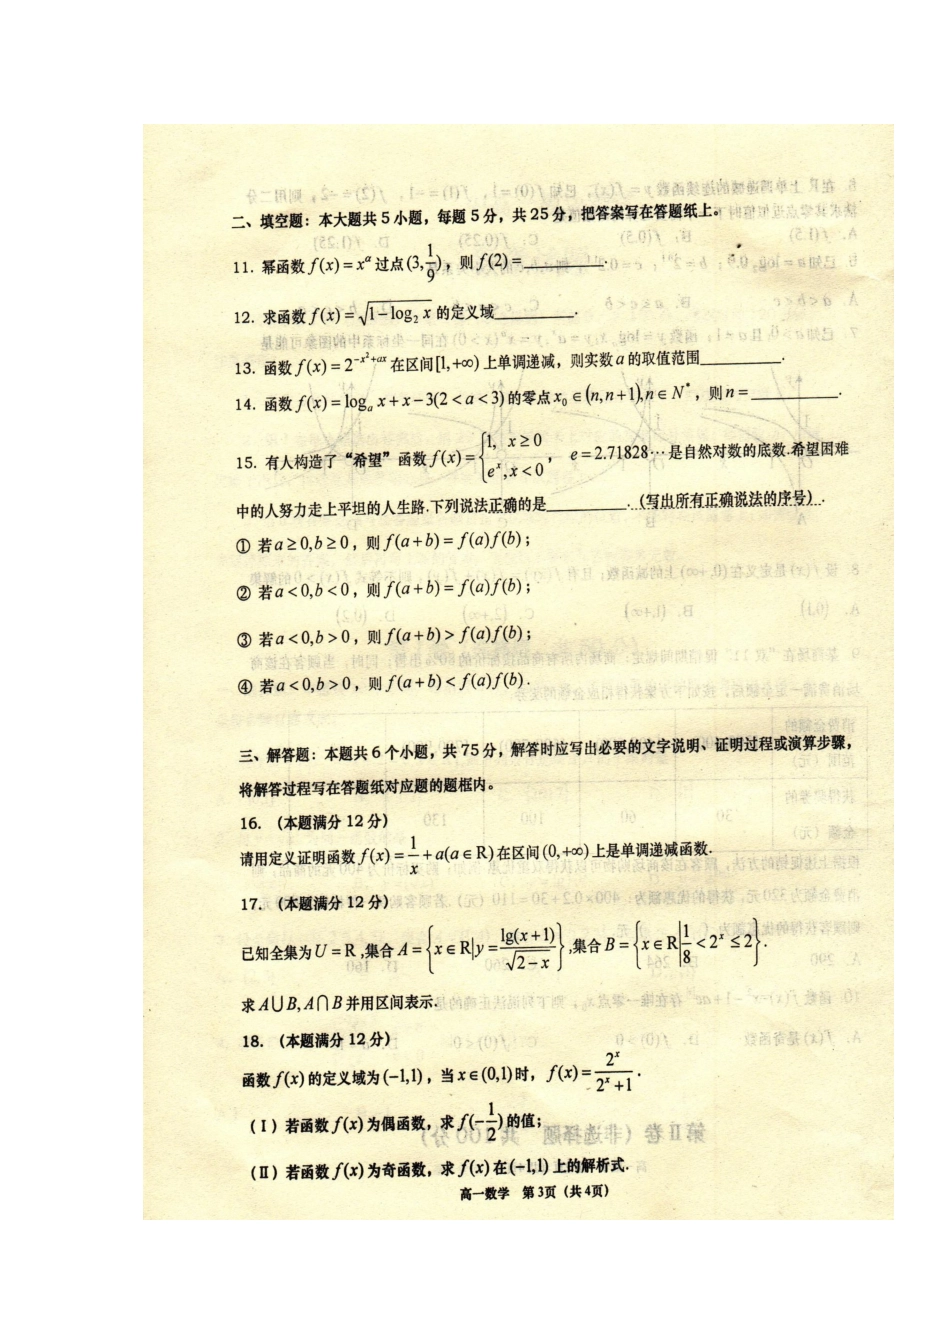 二、填空题：本大题共 5 小题，每题 5 分，共 25 分，把答案写在答题纸上。
11. 幂函数 f(x)=x^α 过点(3,1/9)，则 f(2)=________.
12. 求函数 f(x)=√(1-log₂ x) 的定义域________.
13. 函数 f(x)=2^(-x²+ax) 在区间[1,+∞) 上单调递减，则实数 a 的取值范围________.
14. 函数 f(x)=logₐ x+x-3(2<a<3)的零点 x₀∈(n,n+1),n∈N*，则 n=________.
15. 有人构造了“希望”函数 f(x)={1, x≥0; e^x, x<0，e=2.71828…是自然对数的底数.希望困难
中的人努力走上平坦的人生路.下列说法正确的是________.（写出所有正确说法的序号）.
① 若 a≥0,b≥0，则 f(a+b)=f(a)f(b)；
② 若 a<0,b<0，则 f(a+b)=f(a)f(b)；
③ 若 a<0,b>0，则 f(a+b)>f(a)f(b)；
④ 若 a<0,b>0，则 f(a+b)<f(a)f(b).
三、解答题：本题共 6 个小题，共 75 分，解答时应写出必要的文字说明、证明过程或演算步骤，
将解答过程写在答题纸对应题的题框内。
16.（本题满分 12 分）
请用定义证明函数 f(x)=1/x+a(a∈R)在区间(0,+∞)上是单调递减函数.
17.（本题满分 12 分）
已知全集为 U=R,集合 A={x∈R|y=lg(x+1)/√(2-x)},集合 B={x∈R|1/8<2^x≤2}.
求 A∪B,A∩B 并用区间表示.
18.（本题满分 12 分）
函数 f(x)的定义域为(-1,1)，当 x∈(0,1)时，f(x)=2^x/(2^x+1).
（Ⅰ）若函数 f(x)为偶函数，求 f(-1/2)的值；
（Ⅱ）若函数 f(x)为奇函数，求 f(x)在(-1,1)上的解析式.
高一数学 第3页（共4页）